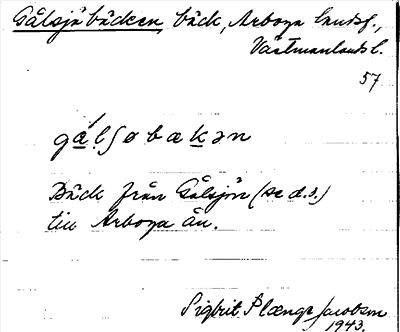 Gålsjöbäcken, bäck, Arboga landsf.,
Västmanlands l.
57
Bäck från Gålsjön (se d.o.)
till Arboga ån.
Sigbrit Plænge Jacobson
1943.